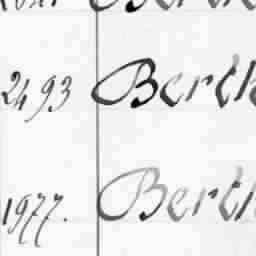 2493 Berth
1977. Berth